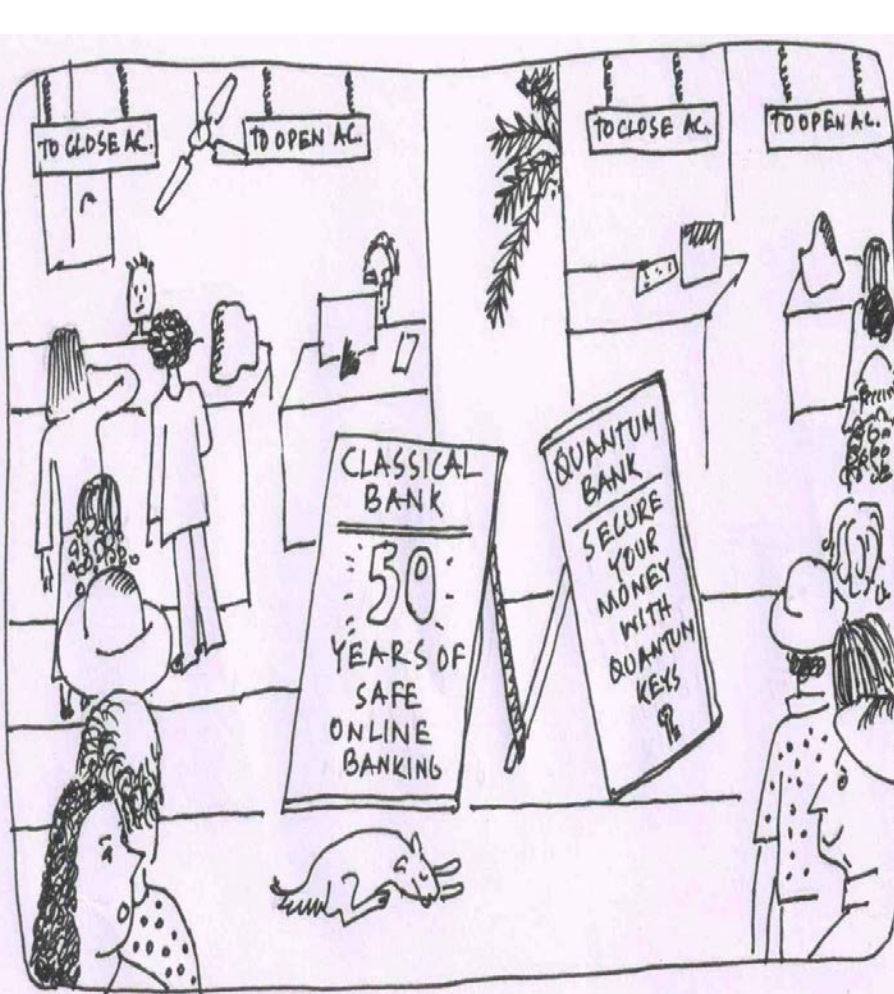 TO CLOSE AC.
TO OPEN AC.
TO CLOSE AC.
TO OPEN AC.
CLASSICAL
BANK
50
YEARS OF
SAFE
ONLINE
BANKING
QUANTUM
BANK
SECURE
YOUR
MONEY
WITH
QUANTUM
KEYS